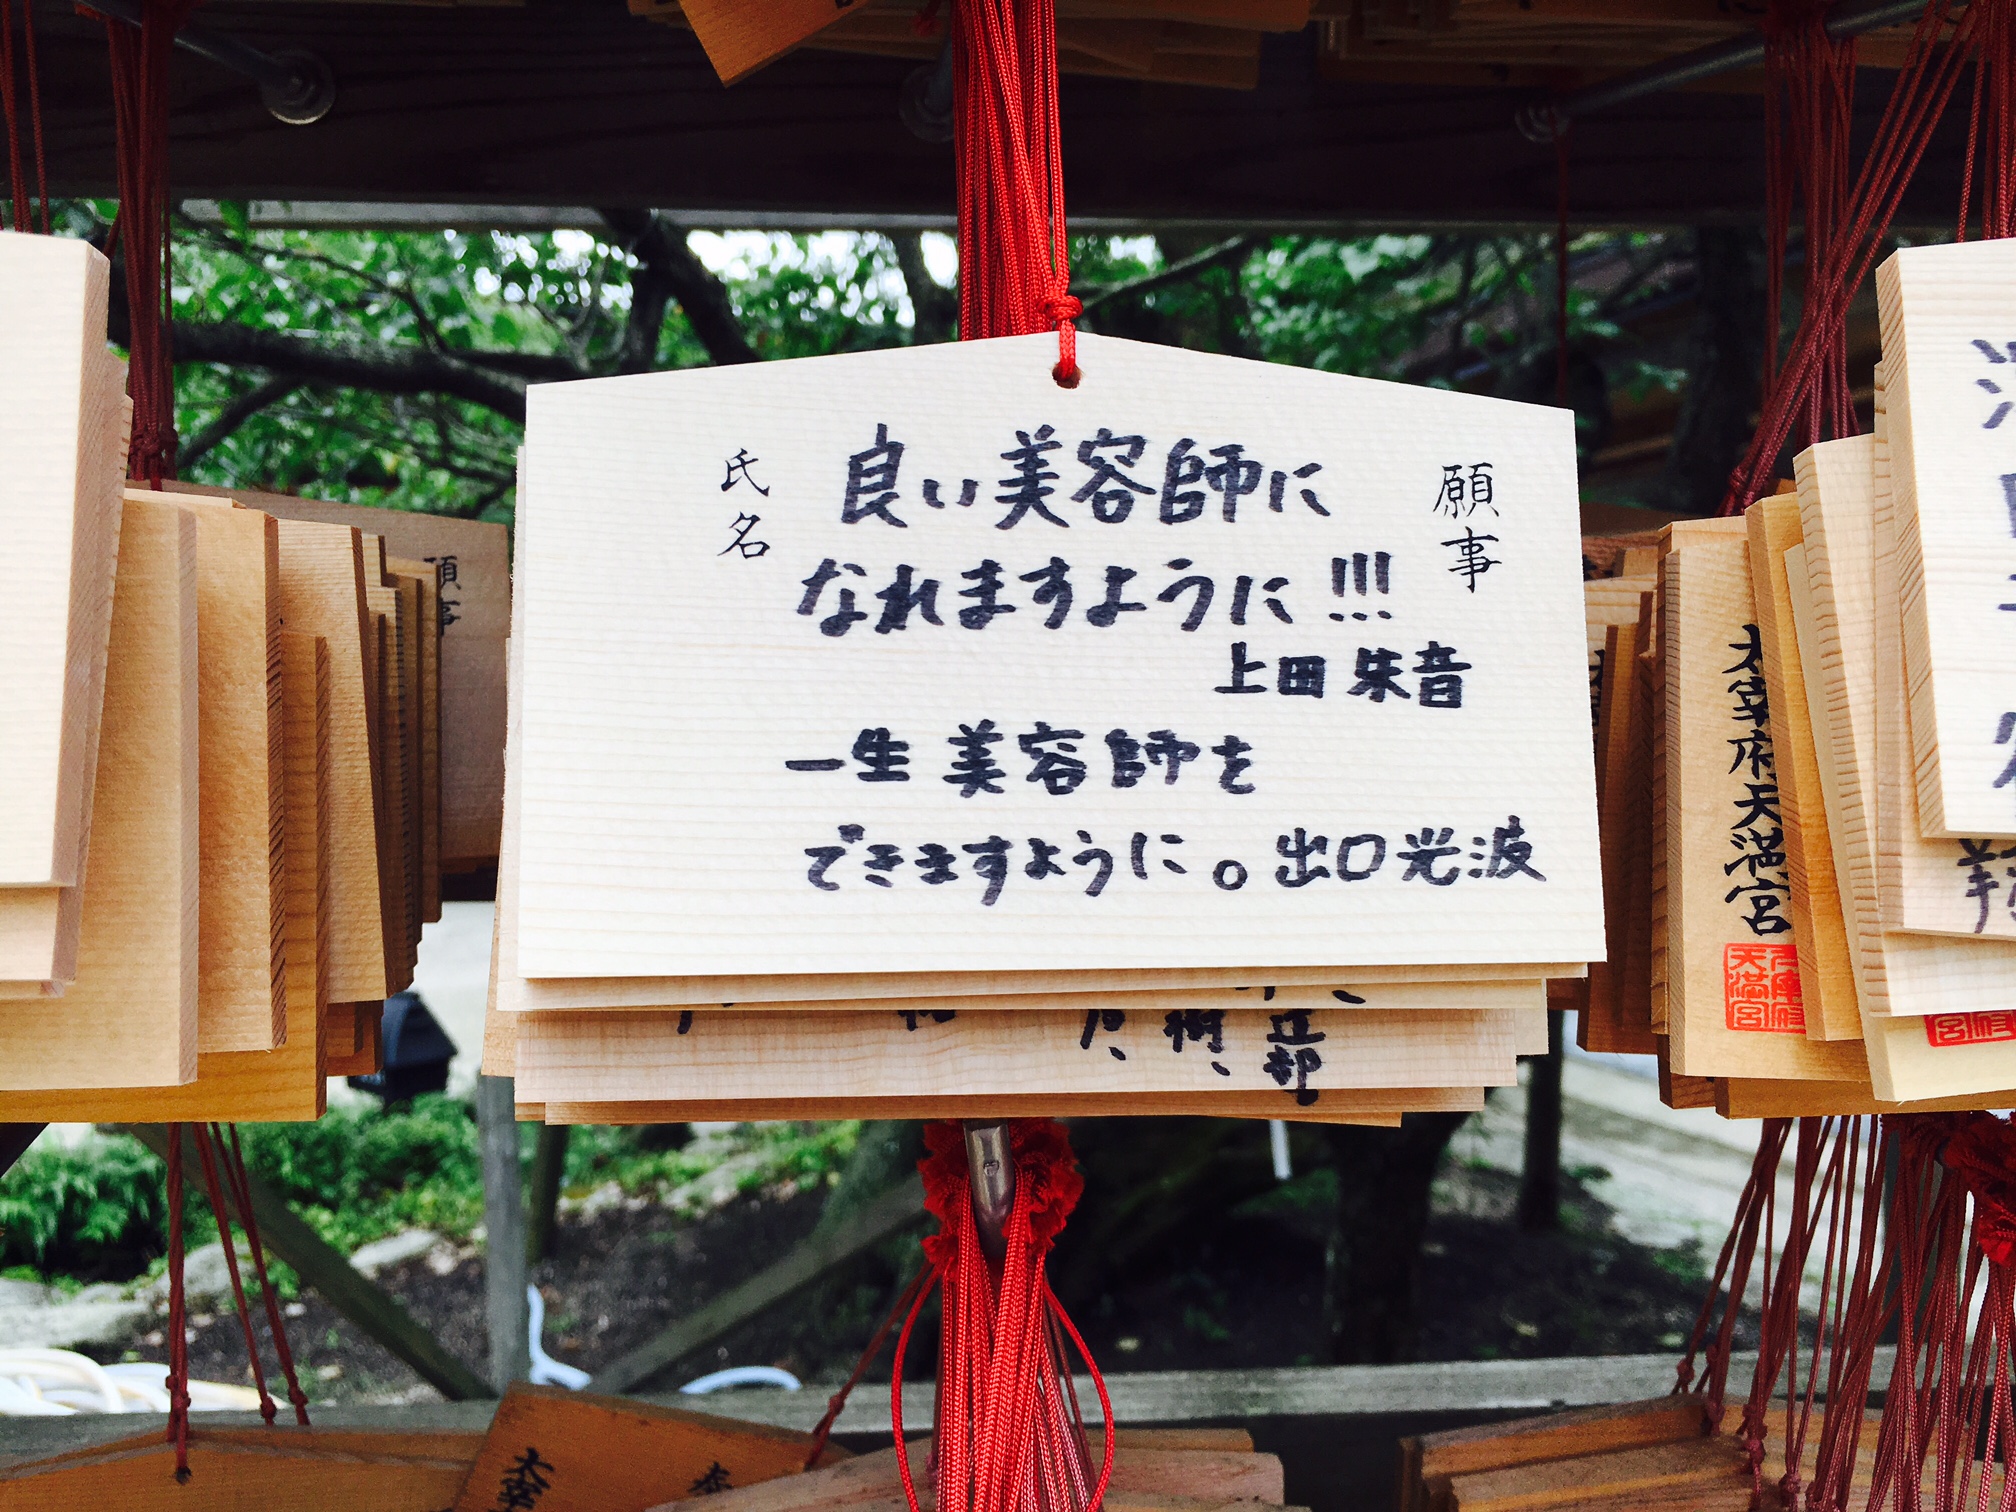 願事
氏名
良い美容師に
なれますように!!!
上田 朱音
一生 美容師を
できますように。出口光波
願事
太宰府天満宮
天満宮